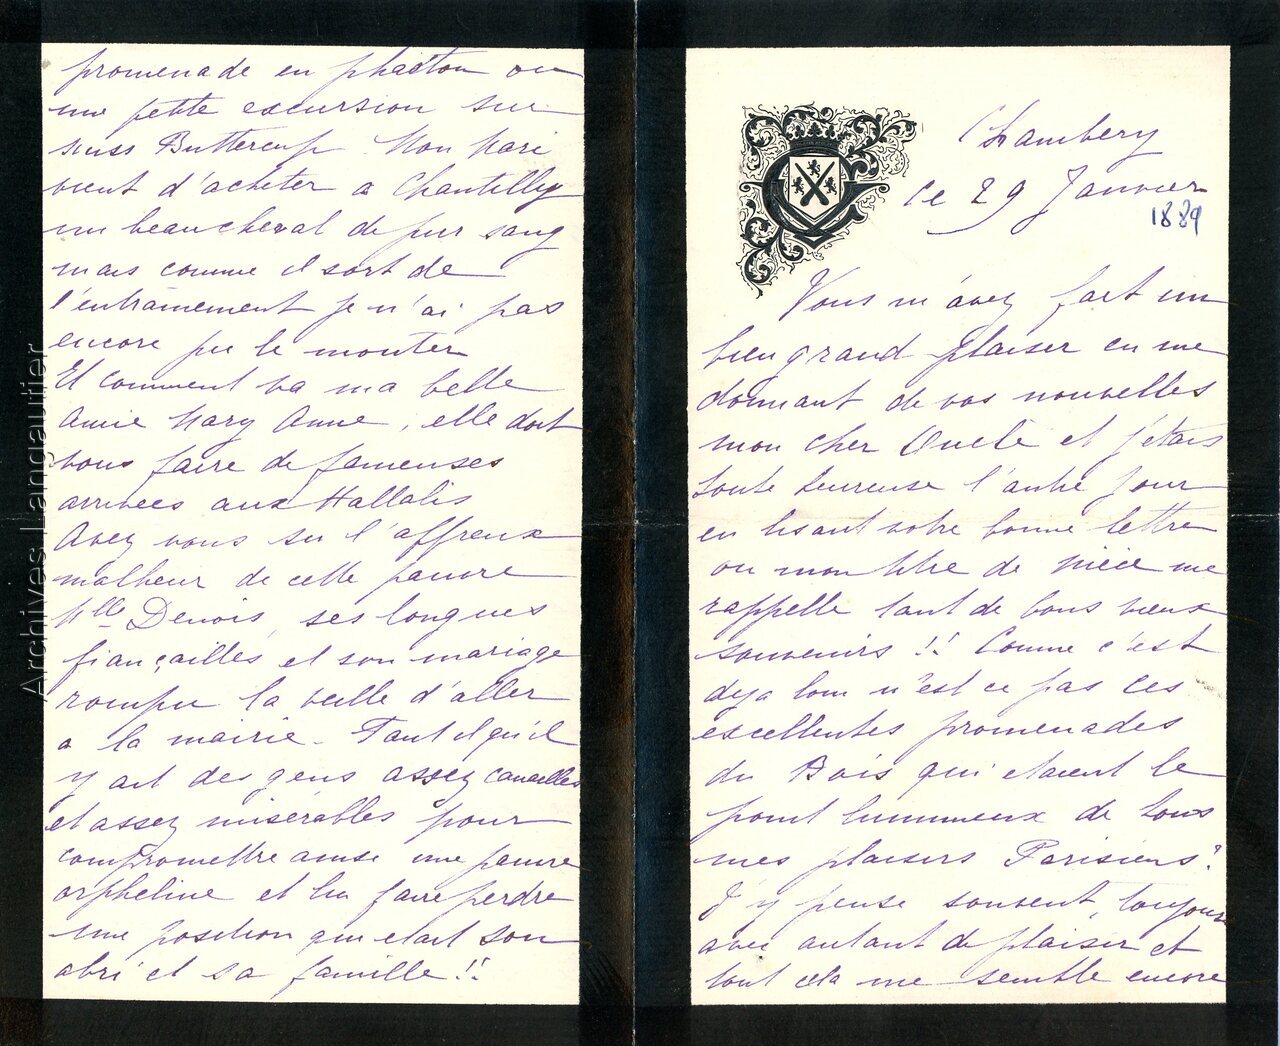 Chambery
le 29 Janvier
1889
Vous m'avez fait un
bien grand plaisir en me
donnant de vos nouvelles
mon cher Oncle et j'étais
toute heureuse l'autre jour
en lisant votre bonne lettre
ou mon titre de nièce me
rappelle tant de bons vieux
souvenirs !! Comme c'est
deja loin n'est ce pas ces
excellentes promenades
du Bois qui etaient le
point lumineux de tous
mes plaisirs Parisiens?
J'y pense souvent, toujours
avec autant de plaisir et
tout cela me semble encore
promenade en phaeton ou
une petite excursion sur
miss Buttercup Mon Mari
vient d'acheter a Chantilly
un beau cheval de pur sang
mais comme il sort de
l'entrainement je n'ai pas
encore pu le monter
Et comment va ma belle
amie Mary Anne, elle doit
vous faire de fameuses
arrivees aux Hallalis
Avez vous su l'affreux
malheur de cette pauvre
Mlle Denois, ses longues
fiançailles et son mariage
rompu la veille d'aller
a la mairie. Faut il qu'il
y ait des gens assez canailles
et assez misérables pour
compromettre ainsi une pauvre
orpheline et lui faire perdre
une position qui etait son
abri et sa famille !!
Archives Langautier